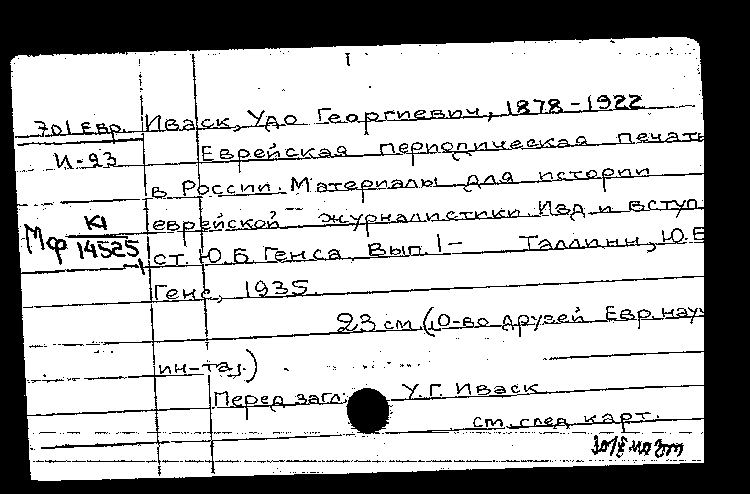 I
701 Евр. Иваск, Удо Георгиевич, 1878-1922
И-23 Еврейская периодическая печать
в России. Материалы для истории
еврейской журналистики. Изд. и вступ.
Мф К1 14525 -1 ст. Ю.Б. Генса. Вып. 1- Таллинн, Ю.Б.
Генс, 1935.
23 см. (О-во друзей Евр. науч.
ин-та.)
Перед загл.: У.Г. Иваск
см. след. карт.